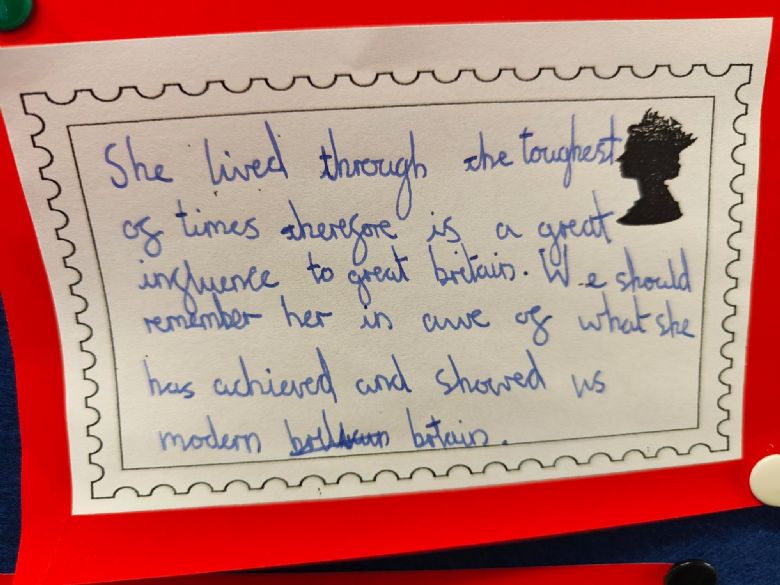 She lived through the toughest
of times therefore is a great
influence to great britain. We should
remember her in awe of what she
has achieved and showed us
modern botain.